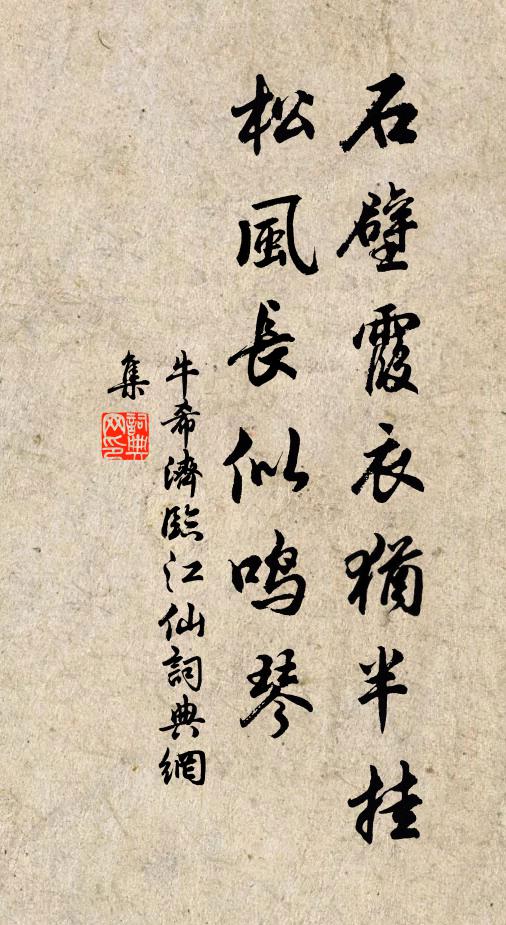 石壁霞衣猶半挂
松風長似鳴琴
牛希濟臨江仙詞典網
集
詞典
网印